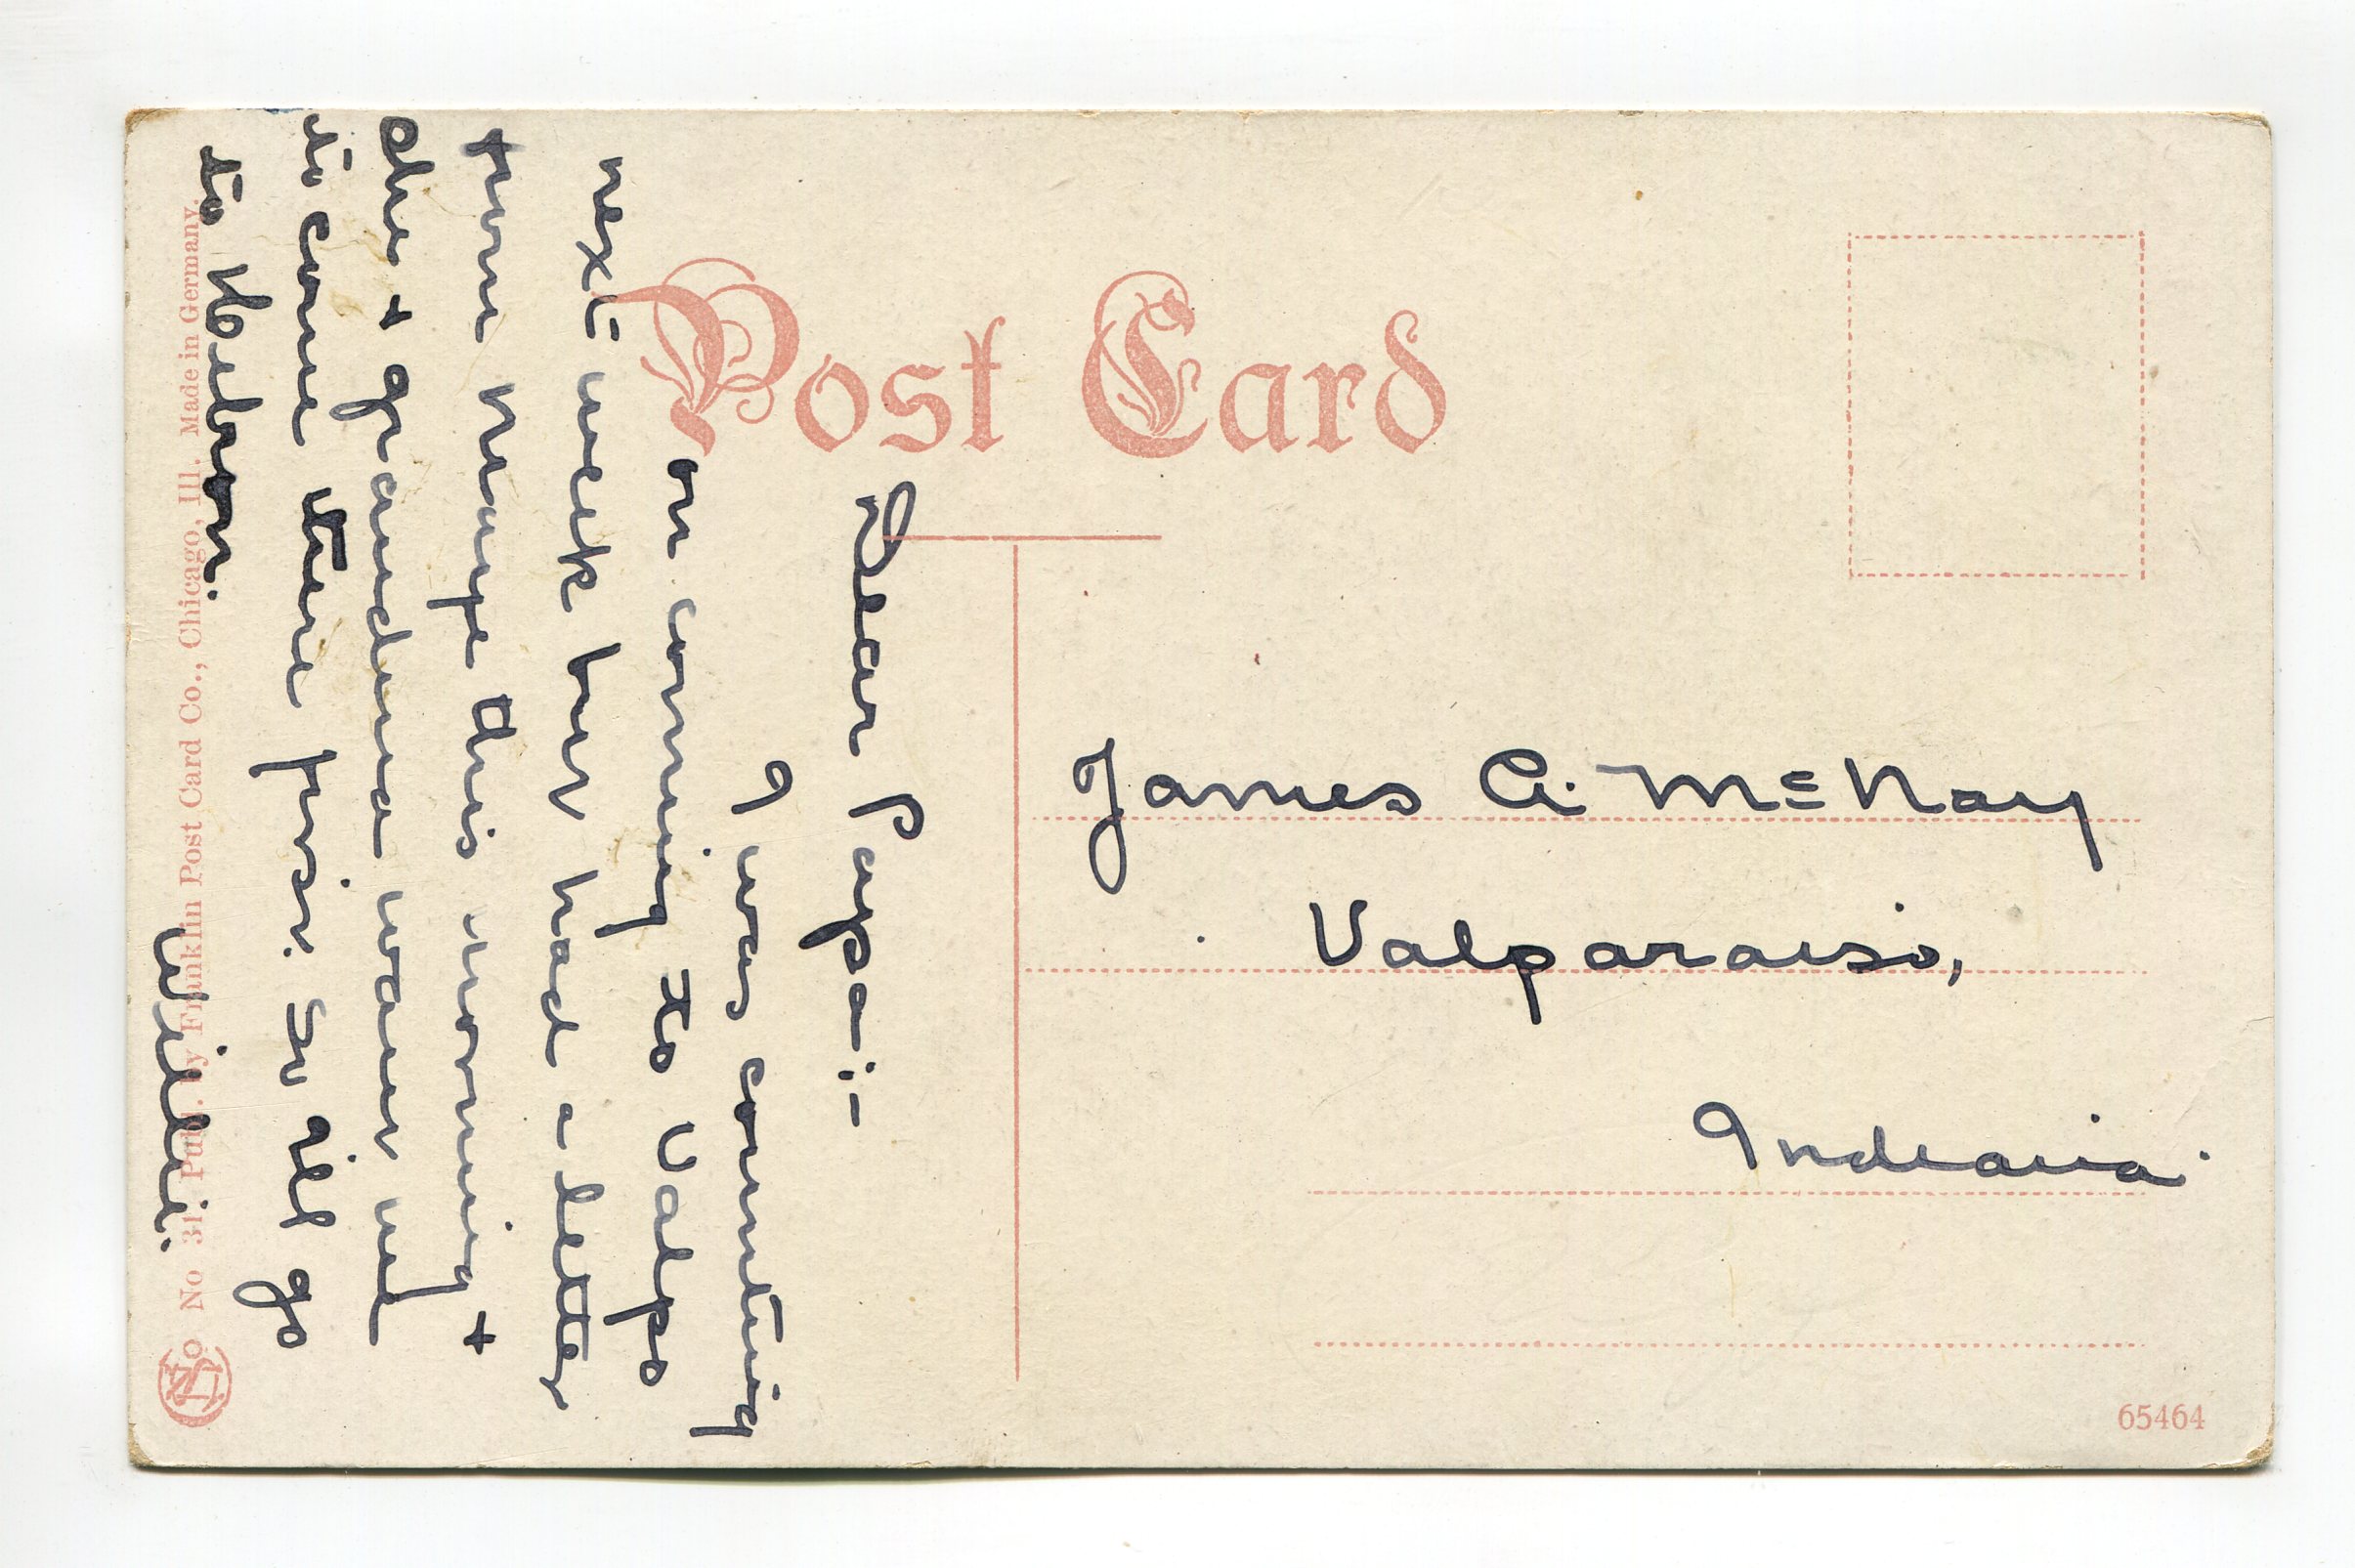 Post Card
Dear Papa:-
I was counting
on coming to Valpo
next week but had a letter
from Marge this morning +
she + grandma want me
to come there first so I'll go
to Hebron.
Willie.
James A. McNay
Valparaiso,
Indiana.
No 31 Publ. by Franklin Post Card Co., Chicago, Ill. Made in Germany.
No
65464